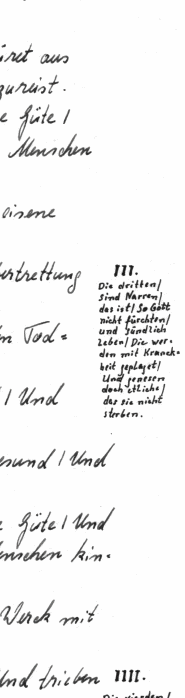 üret aus
zureist.
e Güte/
Menschen
eisene
ertrettung
n Tod=
/ Und
esund / Und
e Güte / Und
enschen kin=
Werck mit
Und trieben
III.
Die dritten/
sind Narren/
das ist/ So Gott
nicht fürchten/
und sündlich
Leben/ Die wer=
den mit Kranck=
heit geplaget/
Und genesen
doch etliche/
das sie nicht
sterben.
IIII.
Die vierden/